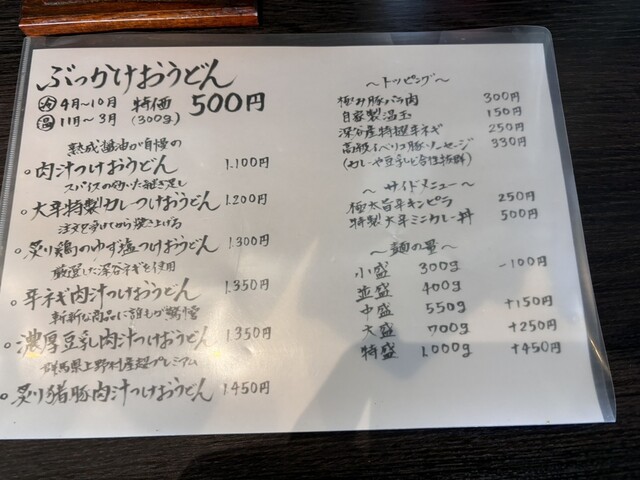 ぶっかけおうどん
冷 4月〜10月 特価 500円
温 11月〜3月 (300g)
熟成醤油が自慢の
。肉汁つけおうどん 1.100円
スパイスの効いた継ぎ足し
。大辛特製カレーつけおうどん 1.200円
注文を受けてから焼き上げる
。炙り鶏のゆず塩つけおうどん 1.300円
厳選した深谷ネギを使用
。辛ネギ肉汁つけおうどん 1.350円
斬新な商品に誰もが驚愕
。濃厚豆乳肉汁つけおうどん 1.350円
群馬県上野村産超プレミアム
。炙り猪豚肉汁つけおうどん 1.450円
〜トッピング〜
極み豚バラ肉 300円
自家製温玉 150円
深谷産特撰辛ネギ 250円
高級イベリコ豚ソーセージ 330円
(カレーや豆乳と合性抜群)
〜サイドメニュー〜
極太旨辛キンピラ 250円
特製大辛ミニカレー丼 500円
〜麺の量〜
小盛 300g -100円
並盛 400g
中盛 550g +150円
大盛 700g +250円
特盛 1.000g +450円